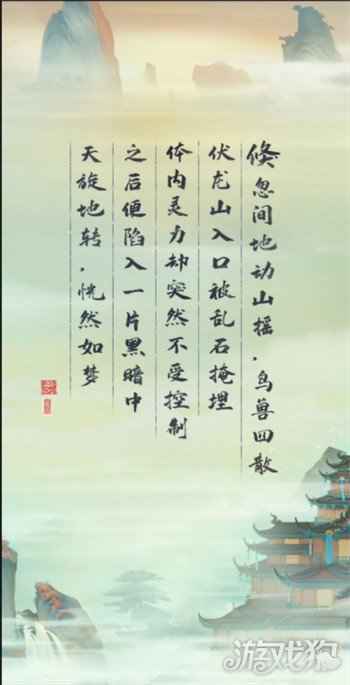 倏忽间地动山摇.鸟兽四散
伏龙山入口被乱石掩埋
体内灵力却突然不受控制
之后便陷入一片黑暗中
天旋地转.恍然如梦
游戏狗